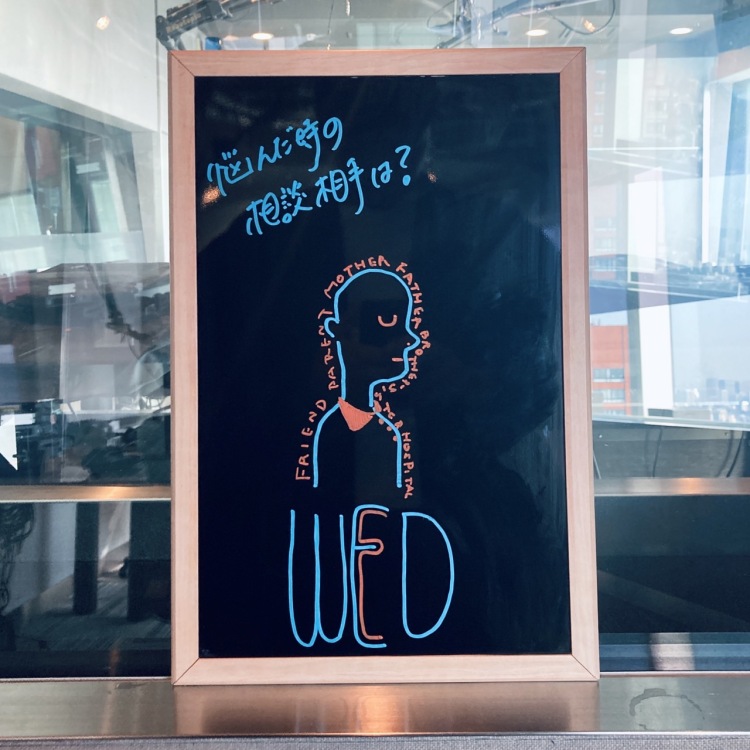 悩んだ時の
相談相手は?
FRIEND PARENT MOTHER FATHER BROTHER SISTER HOSPITAL
WED